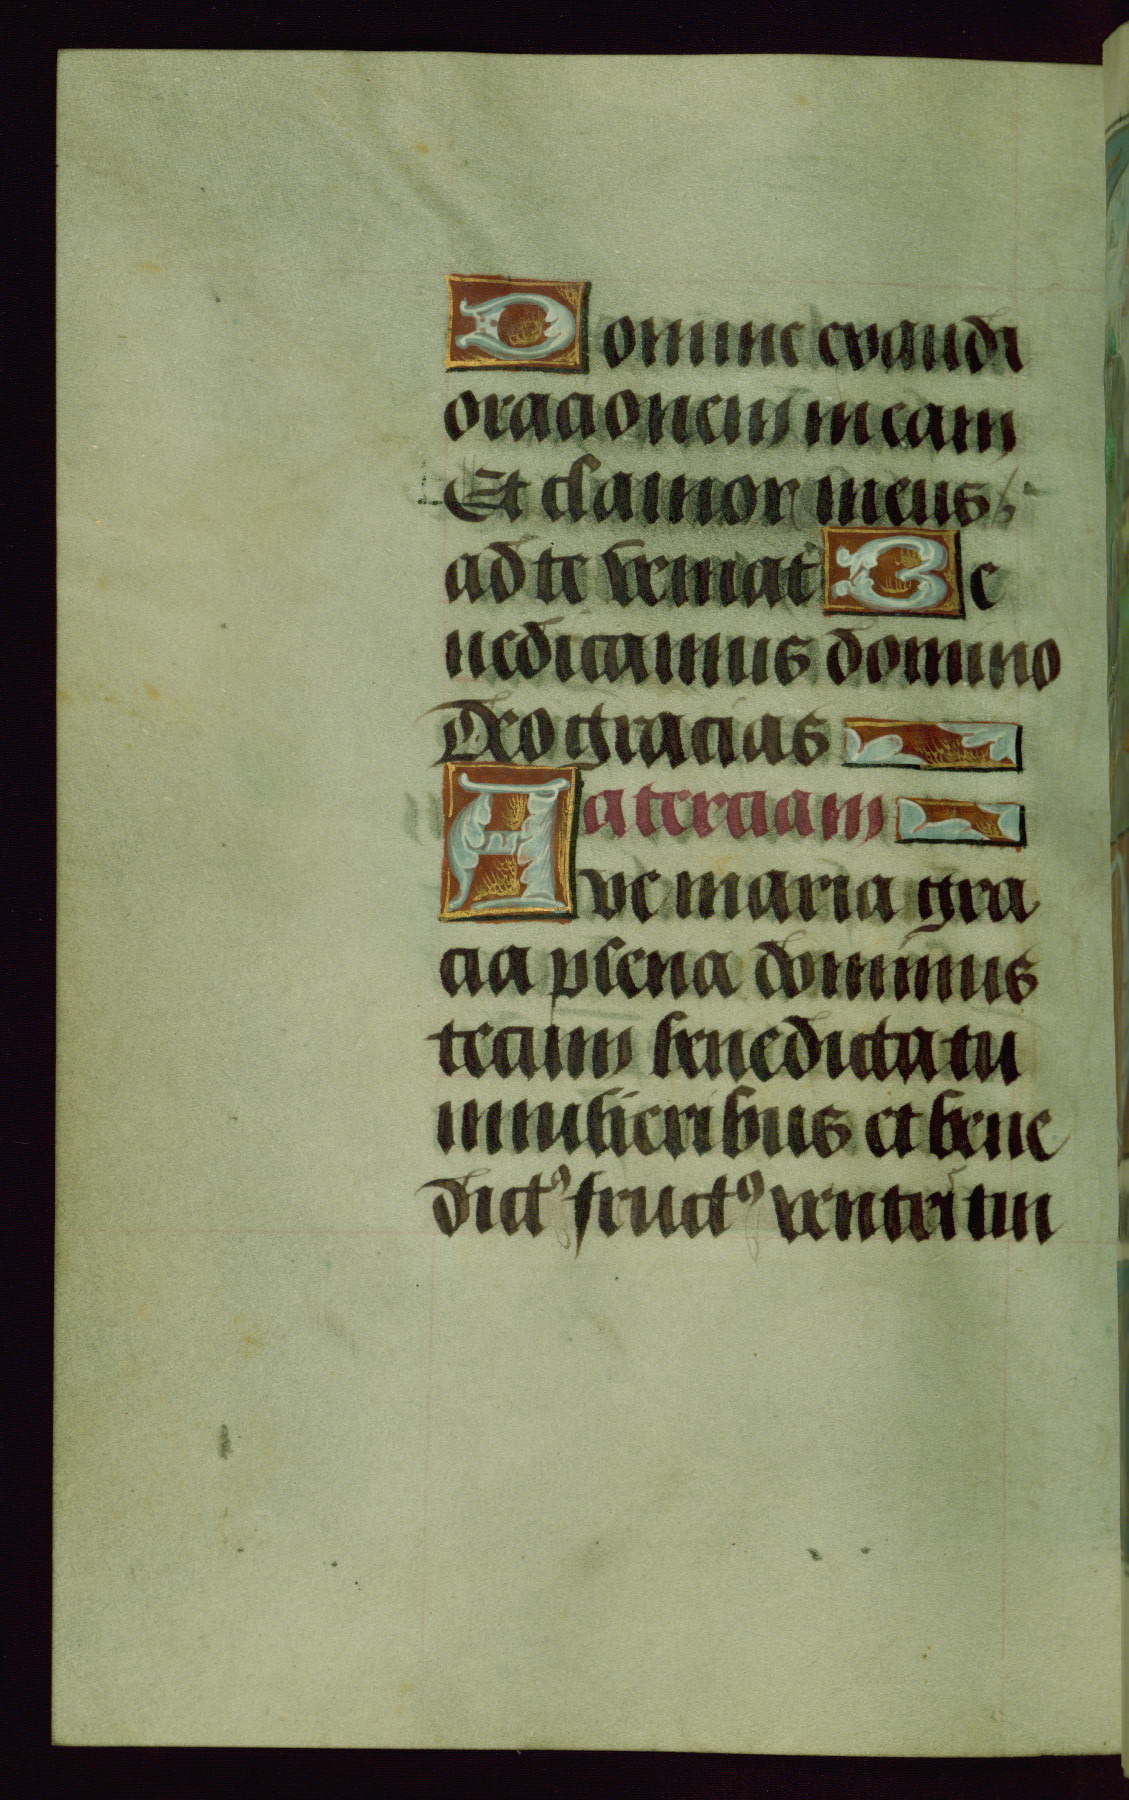 Domine exaudi
oracionem meam
Et clamor meus
ad te veniat Be
nedicamus domino
Deo gracias
ad terciam
Ave maria gra
cia plena dominus
tecum benedicta tu
in mulieribus et bene
dictꝰ fructꝰ ventris tui